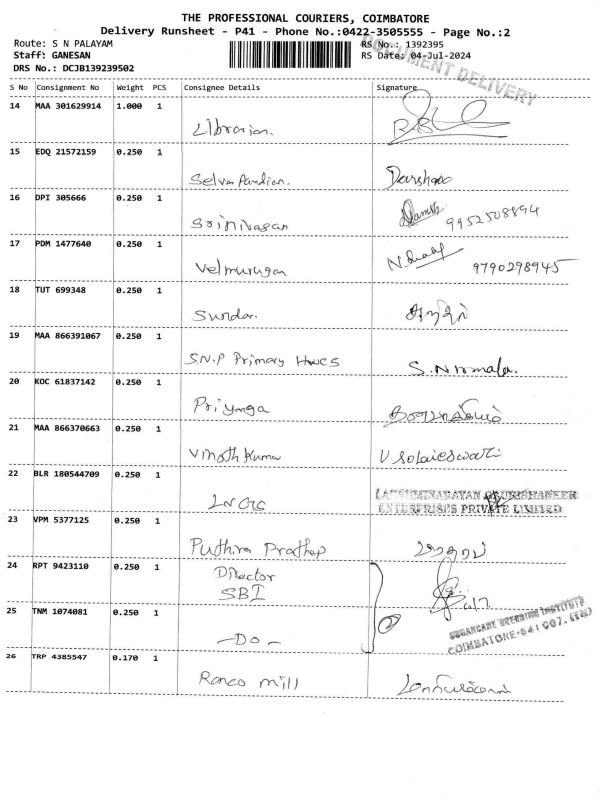 THE PROFESSIONAL COURIERS, COIMBATORE
Delivery Runsheet - P41 - Phone No.:0422-3505555 - Page No.:2
Route: S N PALAYAM
RS No.: 1392395
Staff: GANESAN
RS Date: 04-Jul-2024
DRS No.: DCJB139239502
DOCUMENT DELIVERY
S No Consignment No Weight PCS Consignee Details Signature
14 MAA 301629914 1.000 1
Librarian.
15 EDQ 21572159 0.250 1
Selva Pandian. Darshan
16 DPI 305666 0.250 1
Srinivasan 9952508894
17 PDM 1477640 0.250 1
Velmurugan 9790298945
18 TUT 699348 0.250 1
Sundar.
19 MAA 866391067 0.250 1
S.N.P Primary S. Nirmala.
20 KOC 61837142 0.250 1
Priyanga
21 MAA 866370663 0.250 1
Vinoth Kumar V Solaieswari
22 BLR 180544709 0.250 1
LAKSHMINARAYAN GOURISHANKER
ENTERPRISES PRIVATE LIMITED
23 VPM 5377125 0.250 1
Puthira Prathap
24 RPT 9423110 0.250 1 Director
SBI
25 TNM 1074081 0.250 1
-Do- 2
SUGARCANE BREEDING INSTITUTE
COIMBATORE-641 007. (TN)
26 TRP 4385547 0.170 1
Ranco mill